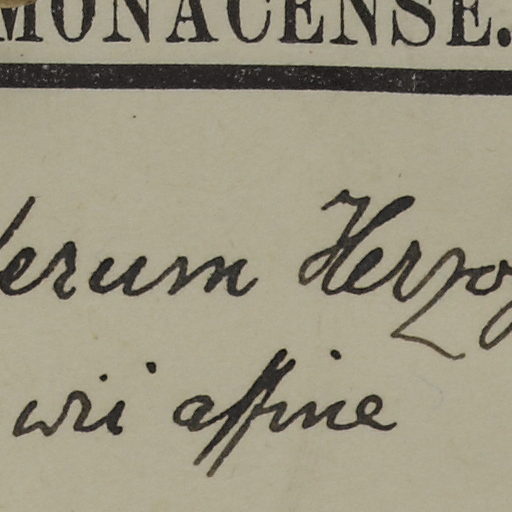 MONACENSE.
erum Herzo
wii affine